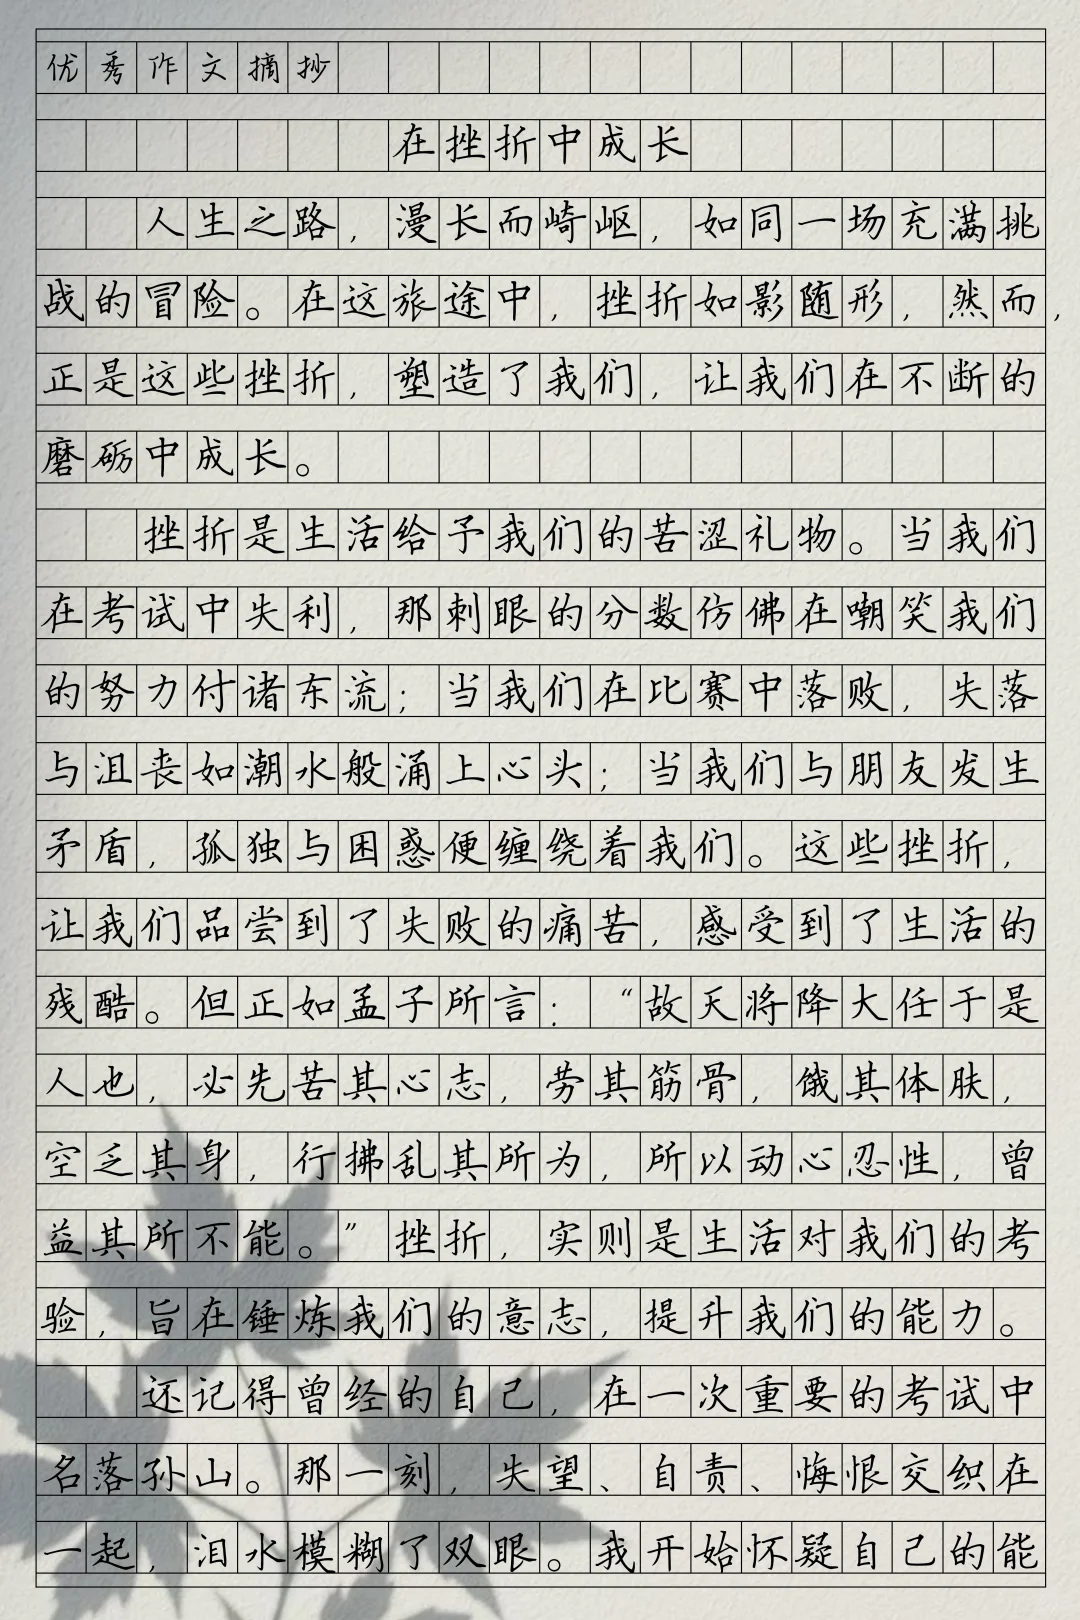 优秀作文摘抄
在挫折中成长
人生之路，漫长而崎岖，如同一场充满挑
战的冒险。在这旅途中，挫折如影随形，然而，
正是这些挫折，塑造了我们，让我们在不断的
磨砺中成长。
挫折是生活给予我们的苦涩礼物。当我们
在考试中失利，那刺眼的分数仿佛在嘲笑我们
的努力付诸东流；当我们在比赛中落败，失落
与沮丧如潮水般涌上心头；当我们与朋友发生
矛盾，孤独与困惑便缠绕着我们。这些挫折，
让我们品尝到了失败的痛苦，感受到了生活的
残酷。但正如孟子所言：“故天将降大任于是
人也，必先苦其心志，劳其筋骨，饿其体肤，
空乏其身，行拂乱其所为，所以动心忍性，曾
益其所不能。”挫折，实则是生活对我们的考
验，旨在锤炼我们的意志，提升我们的能力。
还记得曾经的自己，在一次重要的考试中
名落孙山。那一刻，失望、自责、悔恨交织在
一起，泪水模糊了双眼。我开始怀疑自己的能